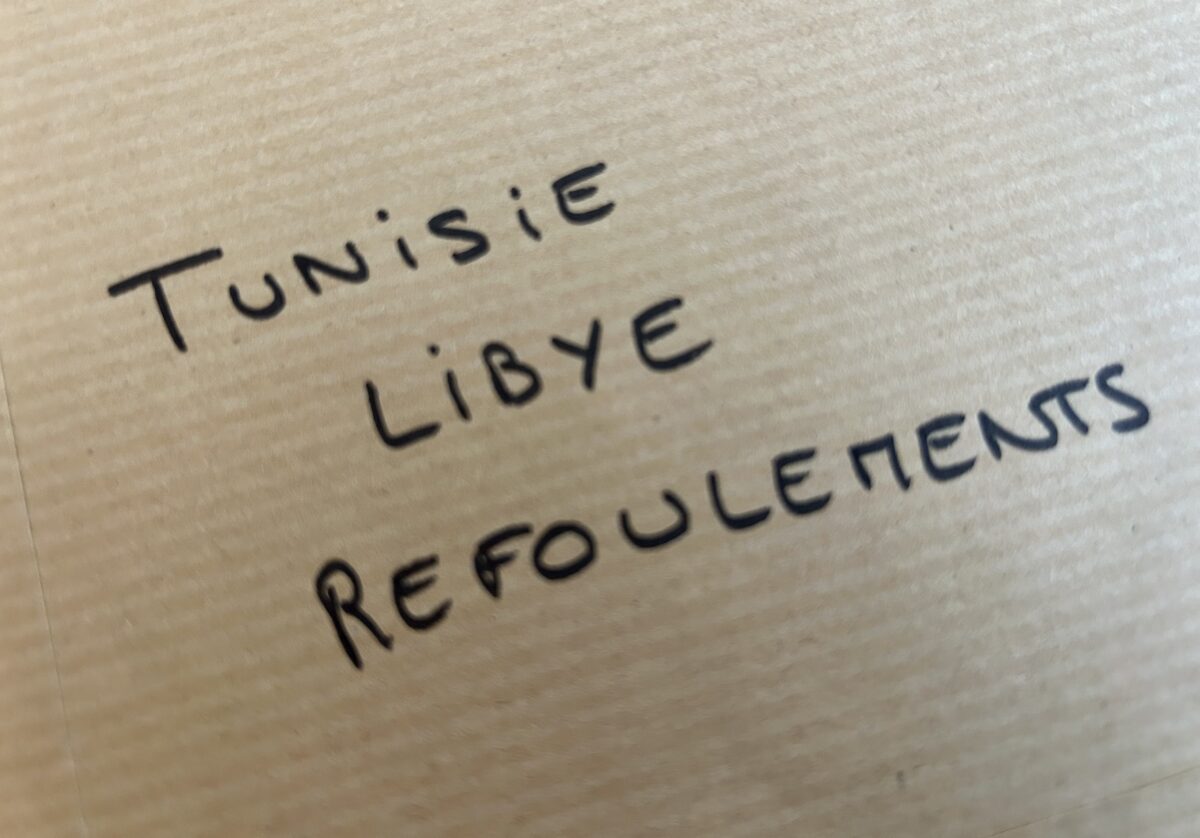 TUNiSiE
LiBYE
REFOULEMENTS